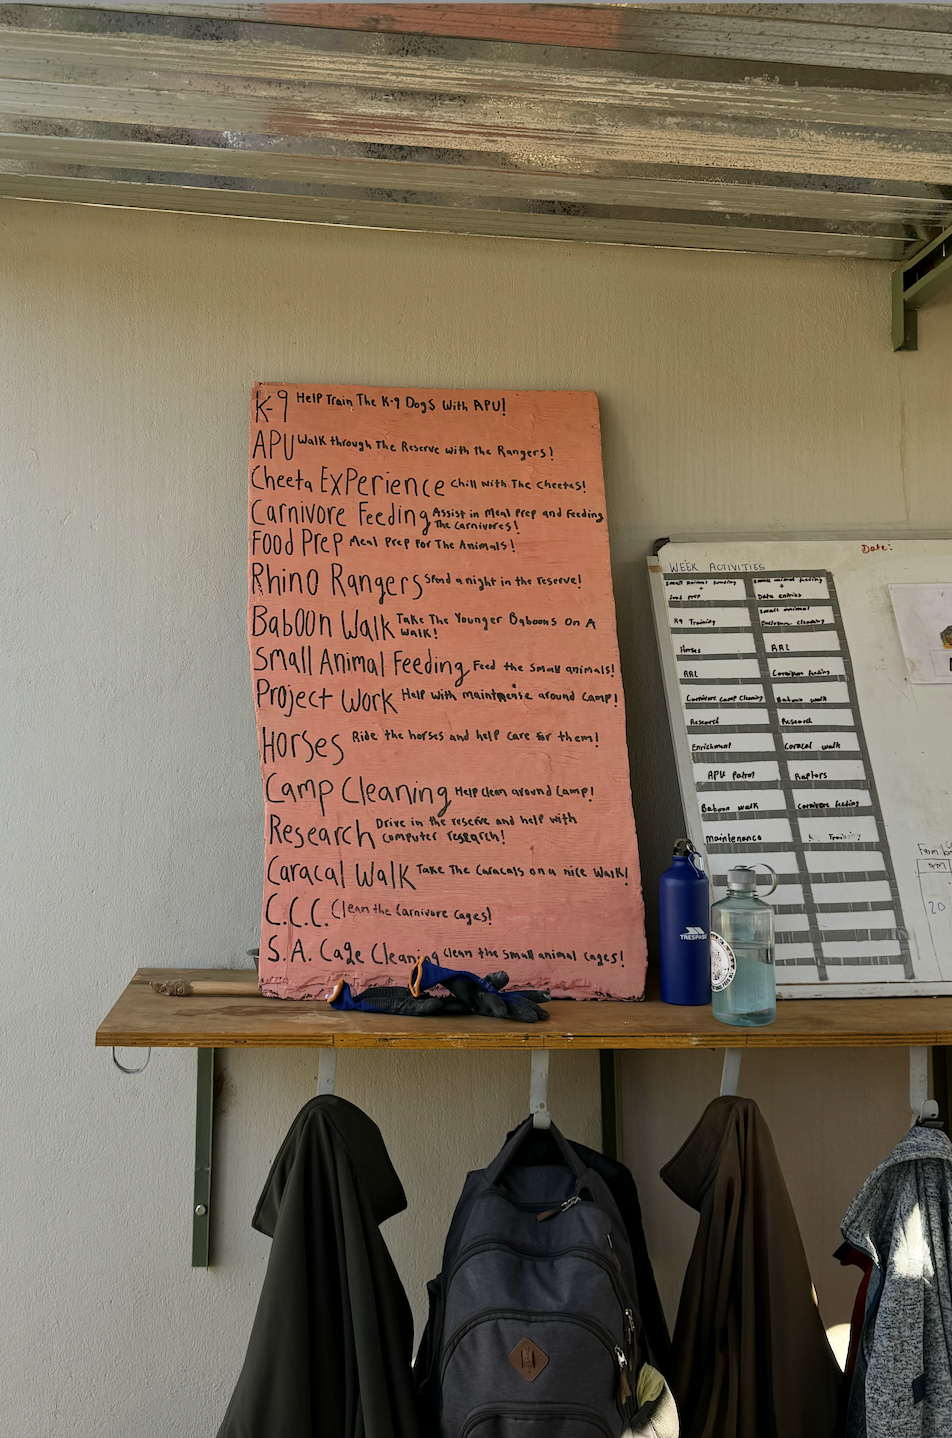 K-9 Help Train The K-9 Dogs With APU!
APU Walk through The Reserve with the Rangers!
Cheeta ExPerience Chill with The Cheetas!
Carnivore Feeding Assist in Meal Prep and Feeding
The Carnivores!
Food Prep Meal Prep For The Animals!
Rhino Rangers Spend a night in the reserve!
Baboon Walk Take The Younger Baboons On A
Walk!
Small Animal Feeding Feed the small animals!
Project Work Help with around Camp!
Horses Ride the horses and help care for them!
Camp Cleaning Help clean around Camp!
Research Drive in the reserve and help with
computer research!
Caracal Walk Take The Caracals on a nice Walk!
C.C.C. Clean the Carnivore Cages!
S.A. Cage Cleaning Clean the Small animal Cages!
Date:
WEEK ACTIVITIES
Small Animal feeding
+
food prep
K9 Training
Horses
ARL
Carnivore Camp Cleaning
Research
Enrichment
APU Patrol
Baboon walk
Maintenance
Small animal feeding
+
Data entries
Small animal
Enclosure cleaning
ARL
Carnivore feeding
Baboon walk
Research
Caracal walk
Raptors
Carnivore feeding
TRESPASS
Farm
AM
20